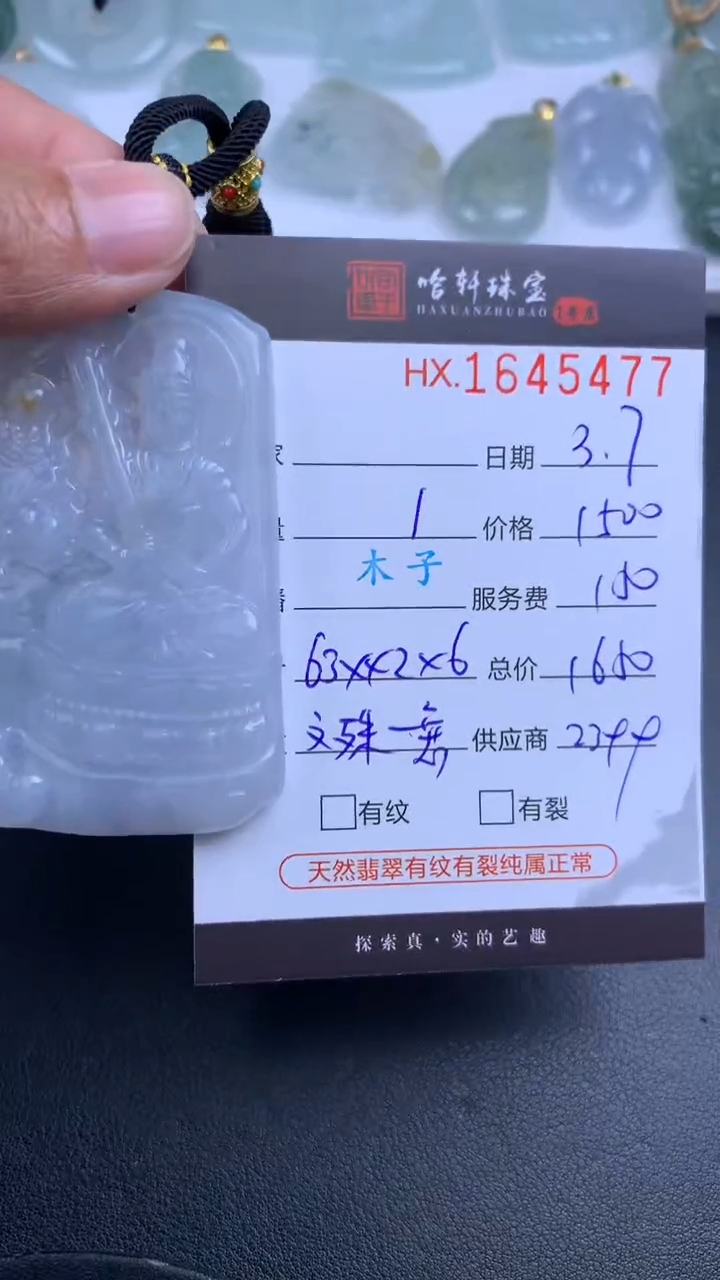 哈轩珠宝
HAXUANZHUBAO
HX.1645477
日期 3.7
1 价格 1500
木子 服务费 150
63×42×6 总价 1650
文殊一 供应商
有纹 有裂
天然翡翠有纹有裂纯属正常
探索真·实的艺趣